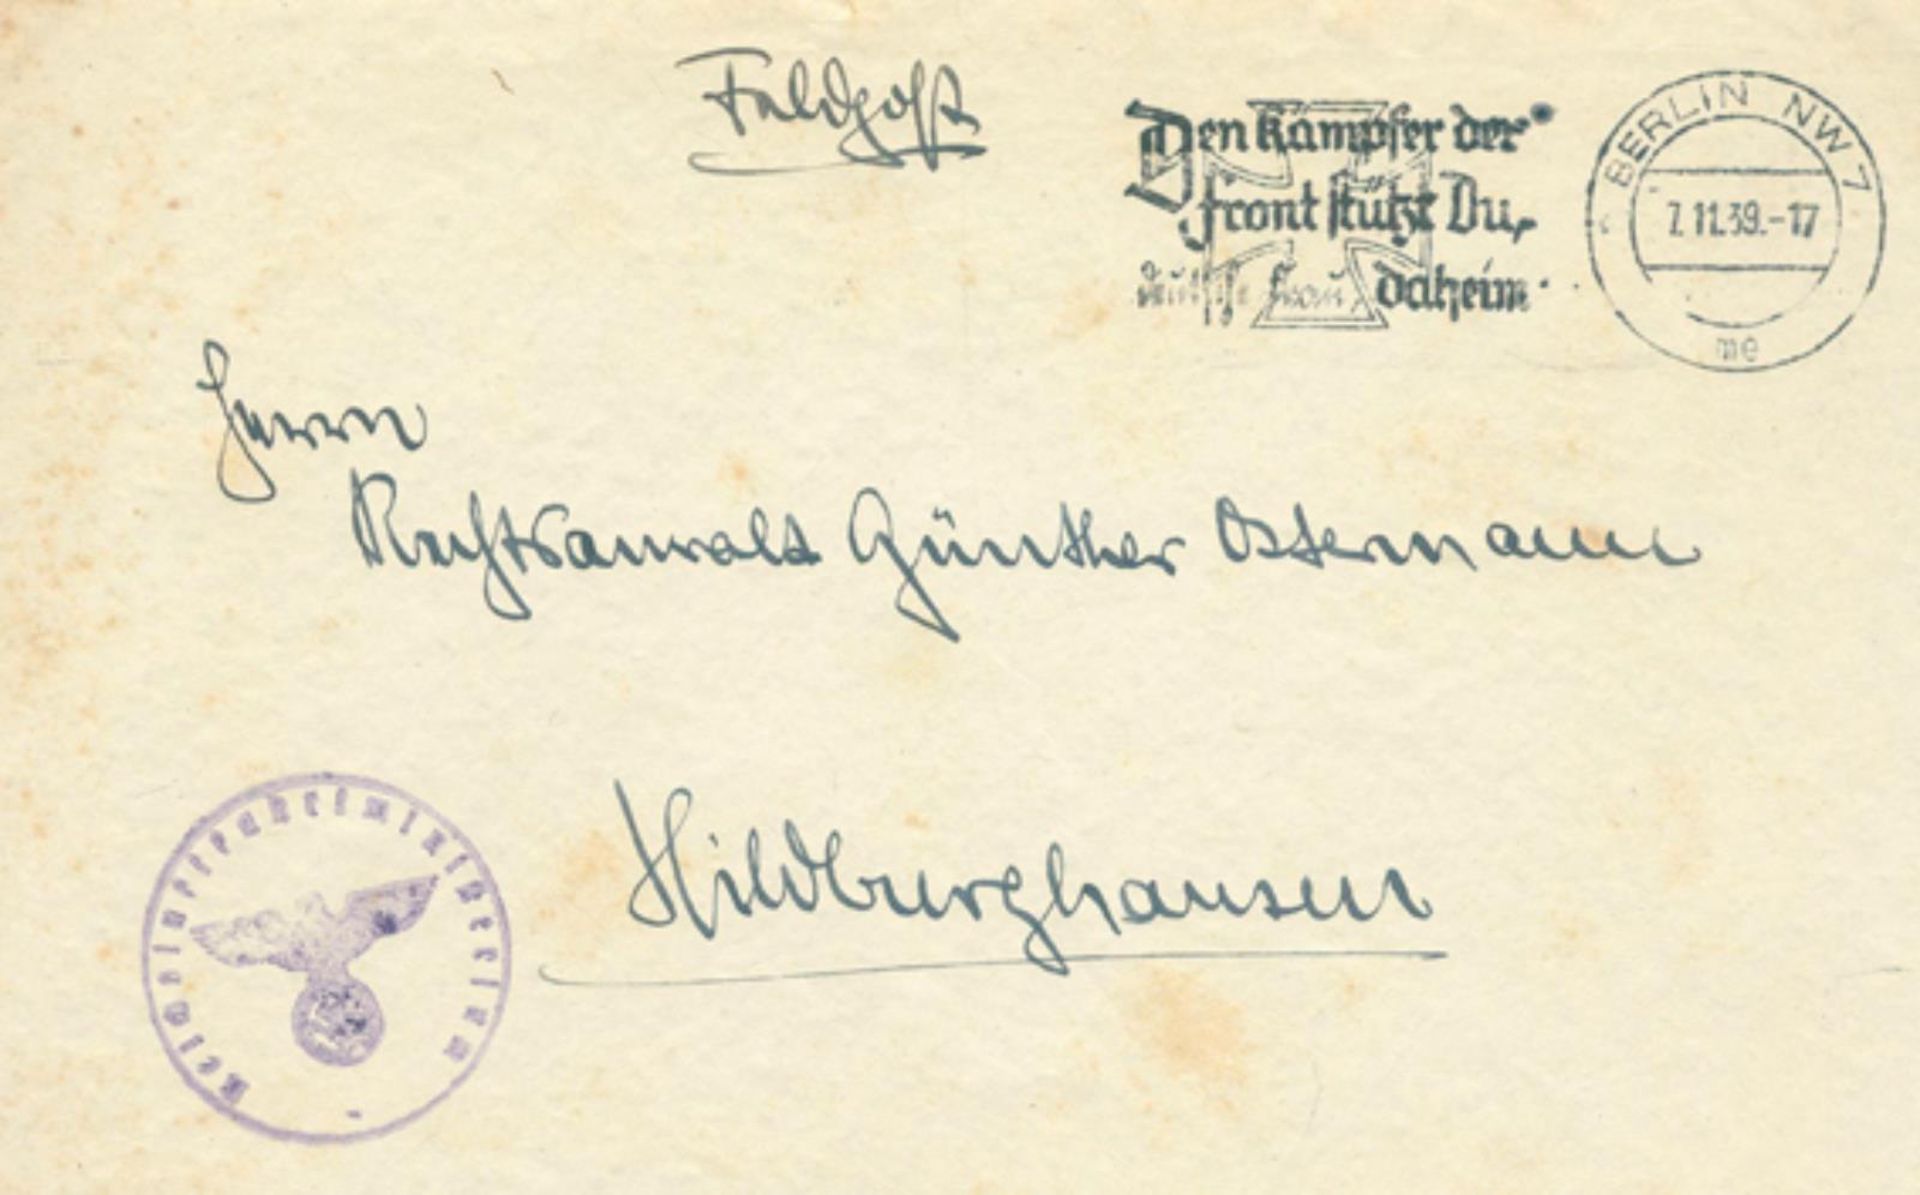 Feldpost
Den Kämpfer der
Front stützt Du,
deutsche Frau, daheim.
BERLIN NW 7
7.11.39.-17
me
Herrn
Rechtsanwalt Günther Ostermann
Hildburghausen
Reichsluftfahrtministerium